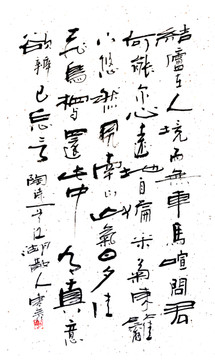 結廬在人境而無車馬喧問君
何能尔心遠地自偏采菊東籬
下悠然見南山山氣日夕佳
飛鳥相與還此中有真意
欲辨已忘言 陶詩